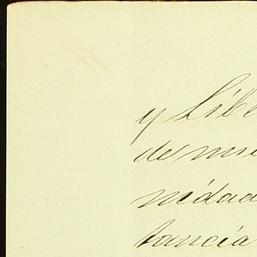 y Libe
de mu
nidad
tancia